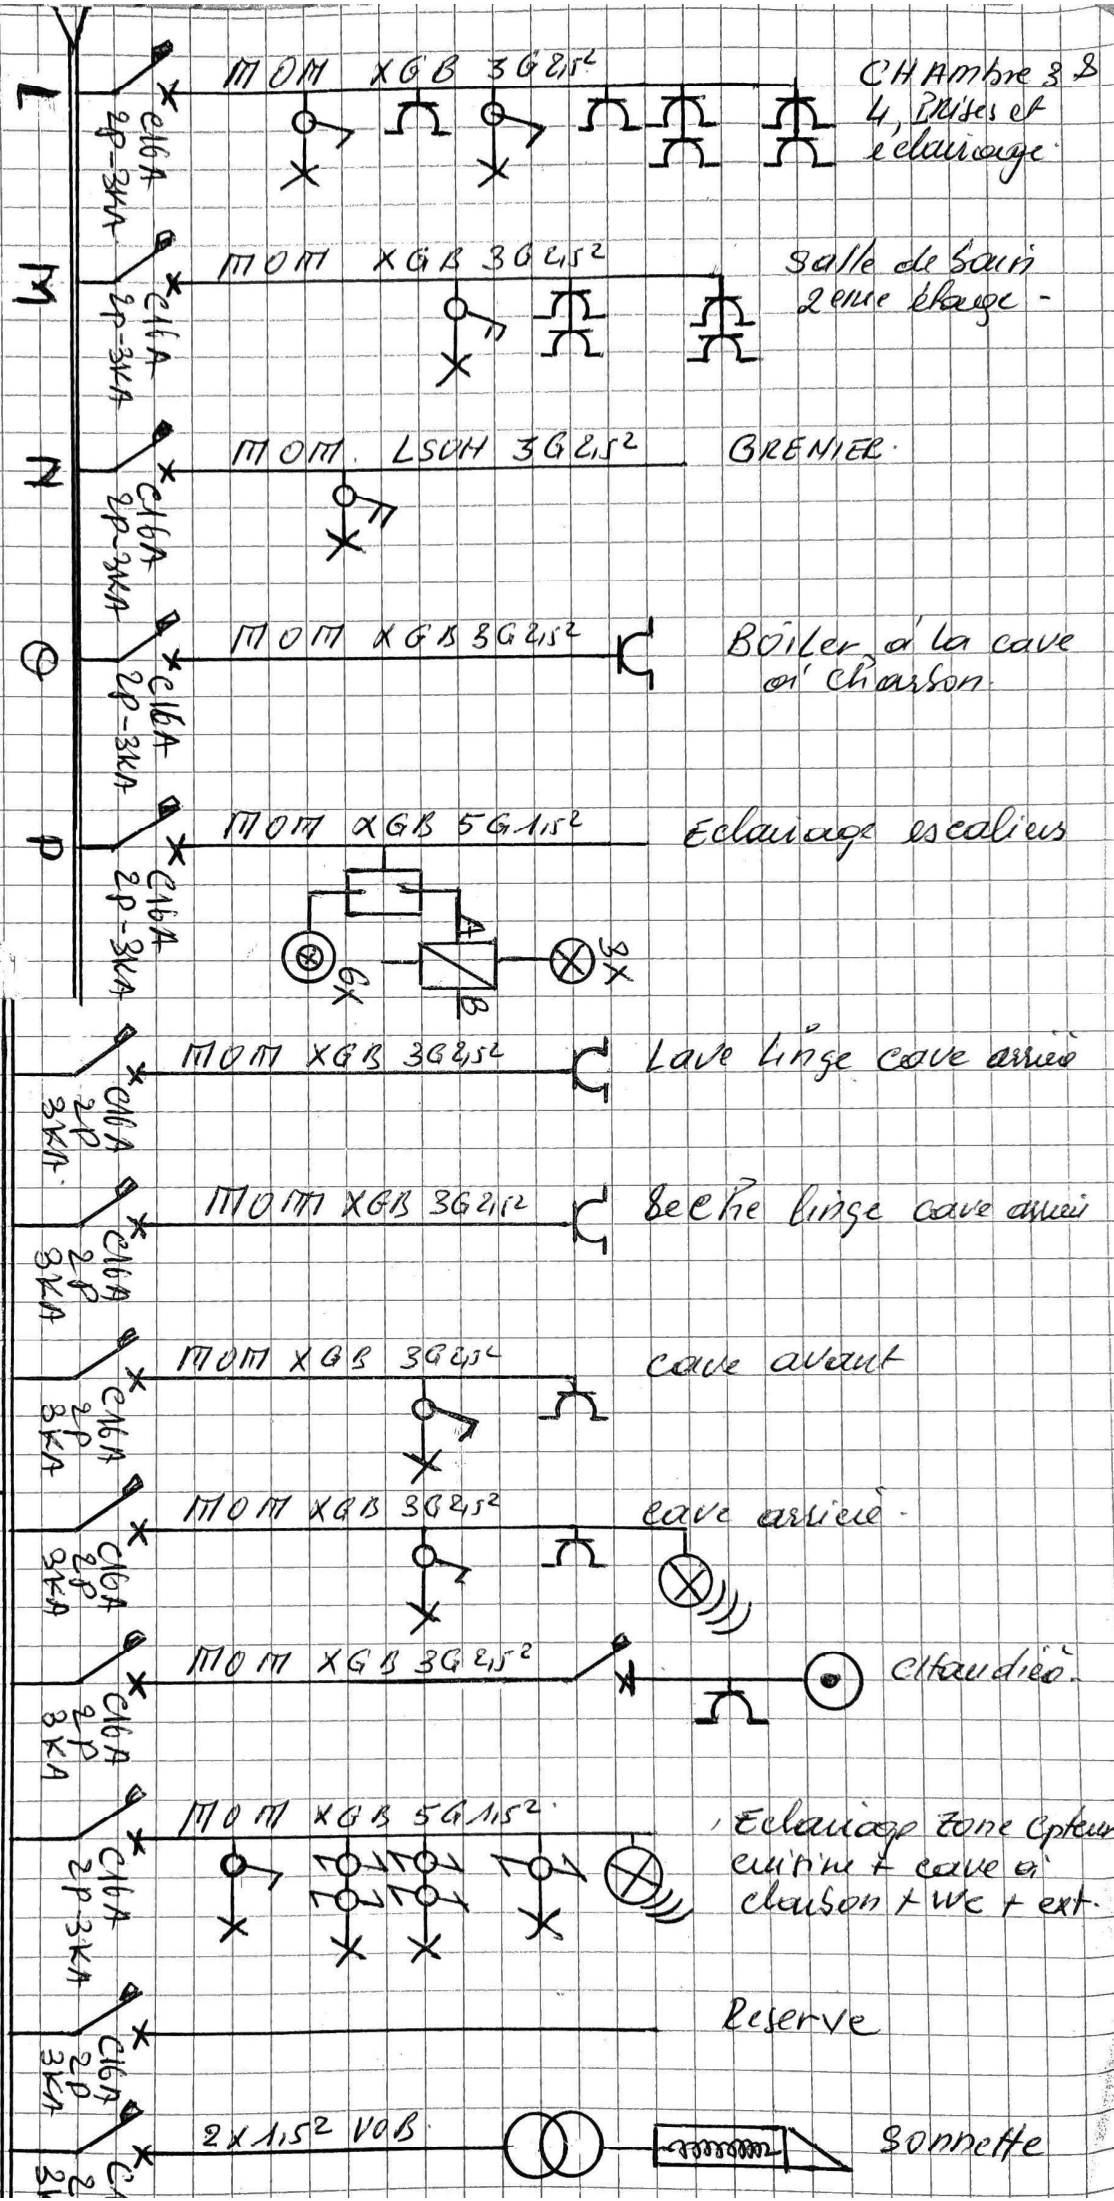 L
C16A
2P-3KA
MOM XGB 3G2,5²
CHAmbre 3 &
4, Prises et
éclairage.
M
C16A
2P-3KA
MOM XGB 3G2,5²
Salle de bain
2eme étage -
N
C16A
2P-3KA
MOM. LSOH 3G2,5²
GRENIER.
O
C16A
2P-3KA
MOM XGB 3G2,5²
Boiler à la cave
à charbon.
P
C16A
2P-3KA
MOM XGB 5G1,5²
Eclairage escaliers
A
B
6X
3X
C16A
2P
3KA.
MOM XGB 3G2,5²
Lave linge cave arrière
C16A
2P
3KA
MOM XGB 3G2,5²
Seche linge cave arrière
C16A
2P
3KA
MOM XGB 3G2,5²
cave avant
C16A
2P
3KA
MOM XGB 3G2,5²
cave arrière.
C16A
2P
3KA
MOM XGB 3G2,5²
CHaudière.
C16A
2P-3KA
MOM XGB 5G1,5².
Eclairage zone
cuisine + cave à
charbon + WC + ext.
C16A
2P
3KA
Reserve
2X1,5² VOB.
Sonnette